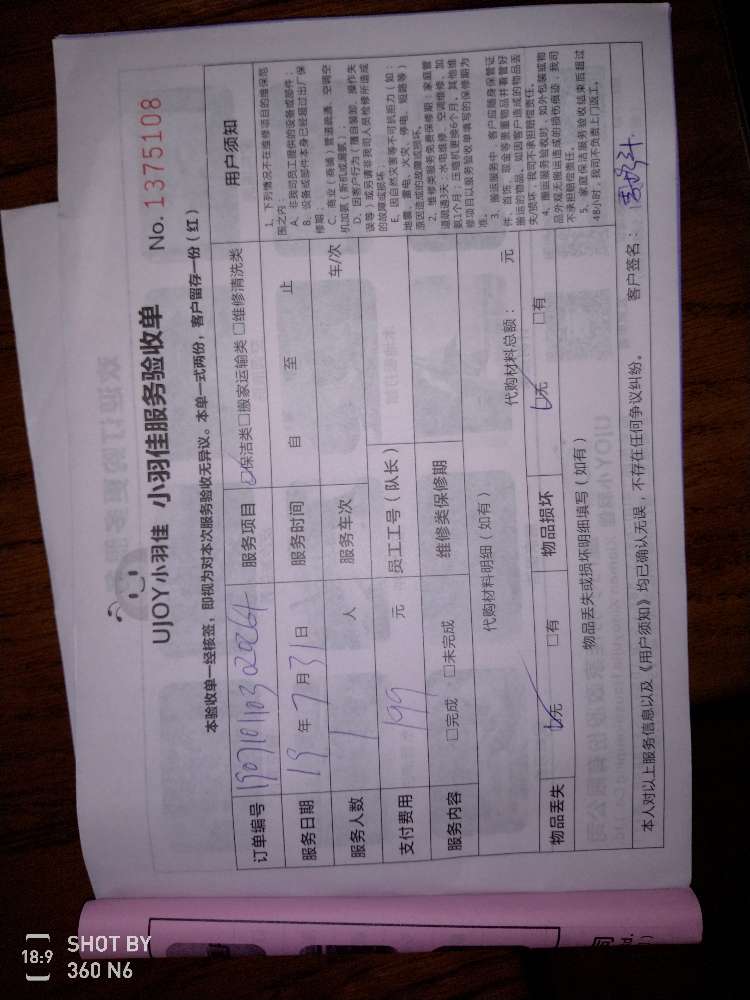 UJOY小羽佳 小羽佳服务验收单 No. 1375108
本验收单一经核签，即视为对本次服务验收无异议。本单一式两份，客户留存一份（红）
订单编号 服务项目 ☑保洁类□搬家运输类 □维修清洗类
服务日期 19 年 7 月 31 日 服务时间 自 至 止
服务人数 1 人 服务车次 车/次
支付费用 199 元 员工工号（队长）
服务内容 □完成 □未完成 维修类保修期
代购材料明细（如有）
代购材料总额： 元
物品丢失 ☑无 □有 物品损坏 ☑无 □有
物品丢失或损坏明细填写（如有）
本人对以上服务信息以及《用户须知》均已确认无误，不存在任何争议纠纷。 客户签名：
用户须知
1、下列情况不在维修项目的维保范
围之内：
A、非我司员工提供的设备或部件；
B、设备或部件本身已经超过出厂保
修期；
C、商业（商铺）管道疏通、空调空
机加氟（新机或漏氟）；
D、因客户行为（擅自装卸、操作失
误等）或另请非我司人员检修所造成
的故障或损坏；
E、因自然灾害等不可抗拒力（如：
地震、雷电、火灾、停电、短路等）
原因造成的故障或损坏。
2、维修类服务免费保修期：家庭管
道疏通3天；水电维修、空调维修、加
氨1个月；压缩机更换6个月，其他维
修项目以服务验收单填写的保修期为
准。
3、搬运服务中，客户应随身保管证
件、首饰、现金等贵重物品并看管好
搬运的物品，如因客户造成的物品丢
失/损坏，我司不承担赔偿责任。
4、搬运服务验收时，如外包装或物
品外观无搬运造成的损伤痕迹，我司
不承担赔偿责任。
5、家庭保洁服务验收结束后超过
48小时，我司不负责上门返工。
18:9 SHOT BY
360 N6